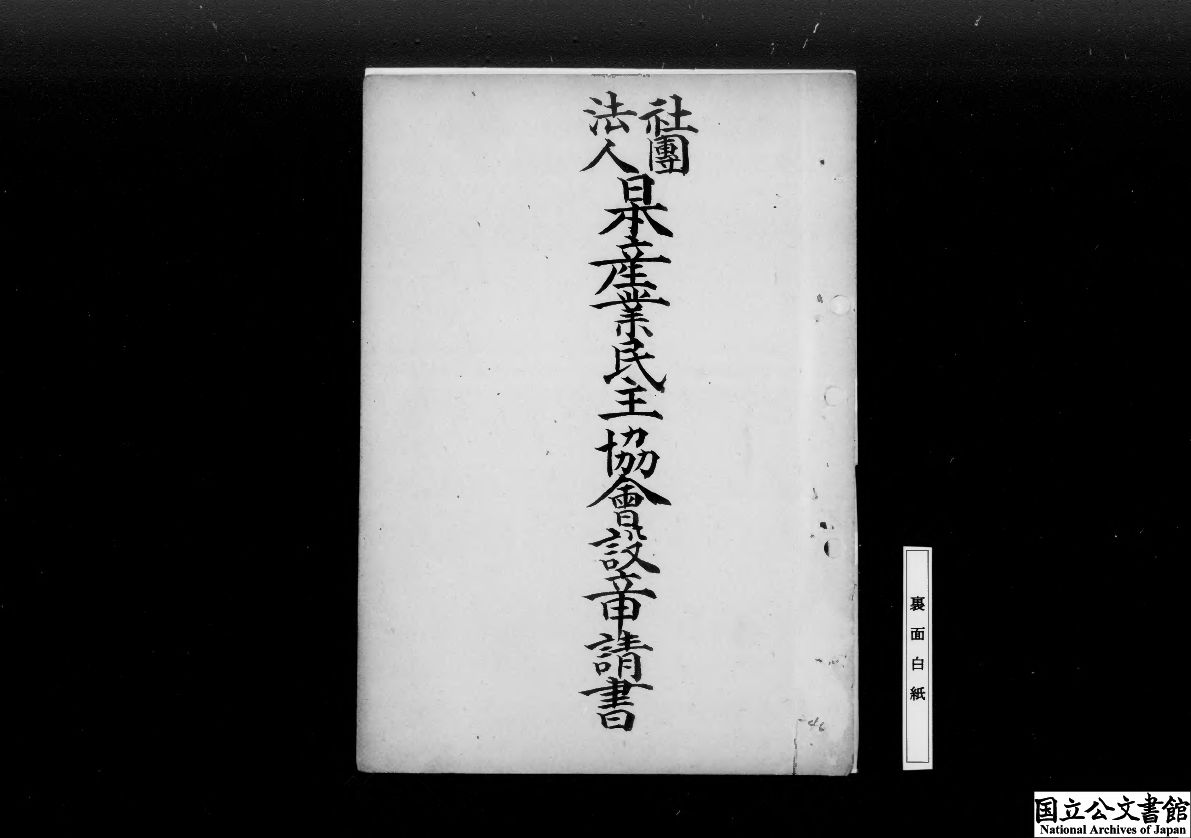 社團
法人
日本産業民主協會設立申請書
46
裏面白紙
国立公文書館
National Archives of Japan